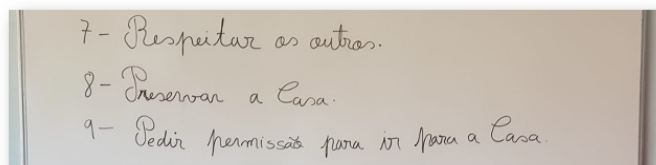 7- Respeitar os outros.
8- Preservar a Casa.
9- Pedir permissão para ir para a Casa.